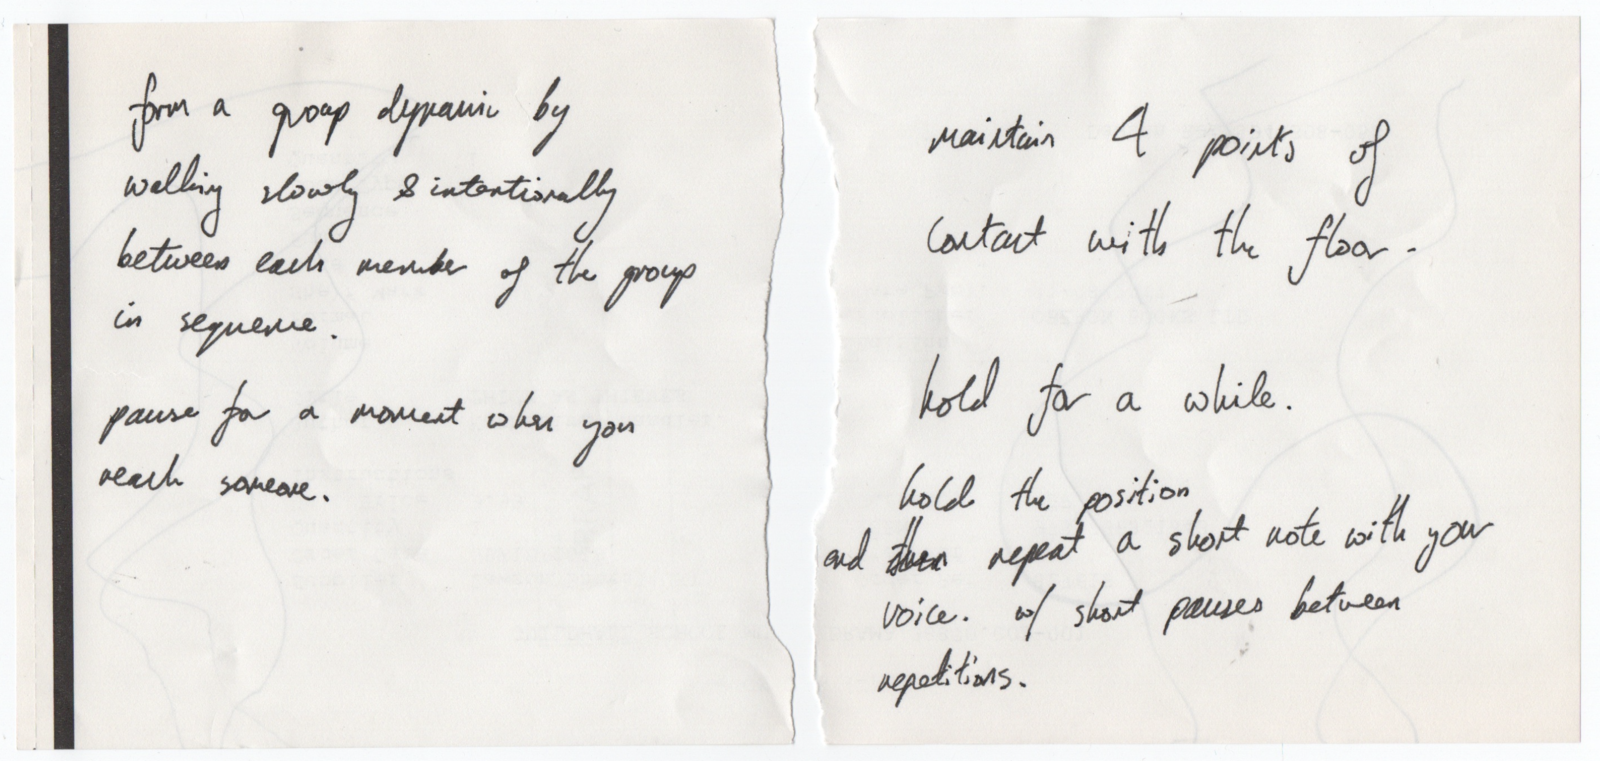 form a group dynamic by
walking slowly & intentionally
between each member of the group
in sequence.
pause for a moment when you
reach someone.
maintain 4 points of
contact with the floor.
hold for a while.
hold the position
and then repeat a short note with your
voice. w/ short pauses between
repetitions.